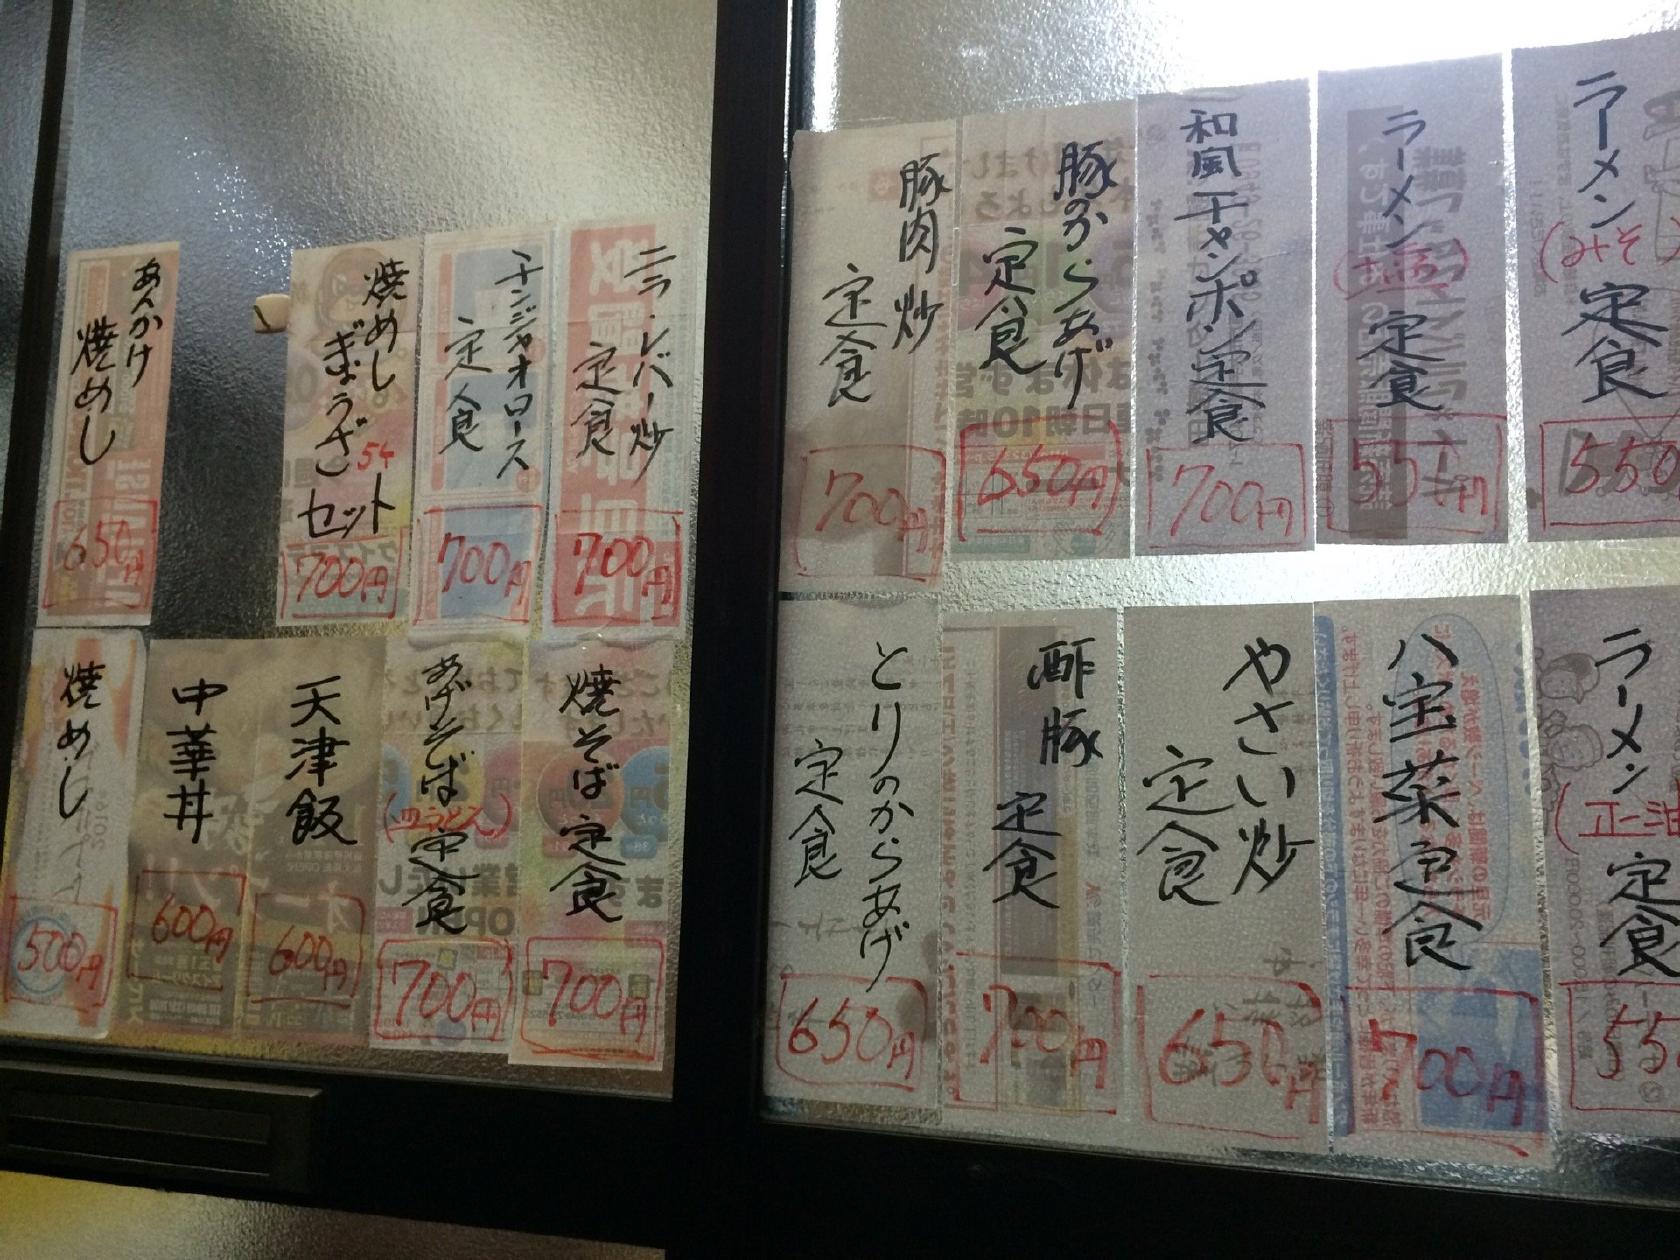 ラーメン
(みそ)
定食
550
ラーメン
定食
和風チャンポン定食
700円
豚のからあげ
定食
650円
豚肉炒
定食
700円
ラーメン
(正油
定食
55
八宝菜定食
700円
やさい炒
定食
650円
酢豚
定食
700円
とりのからあげ
定食
650円
ニラ・レバー炒
定食
700円
チンジャオロース
定食
700円
焼めし
ぎょうざ5ケ
セット
700円
あんかけ
焼めし
650円
焼そば定食
700円
あげそば
(皿うどん)
定食
700円
天津飯
600円
中華丼
600円
焼めし
500円